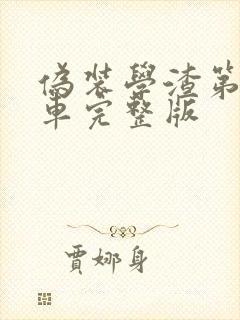 偽裝學渣第
車完整版
賈娜身